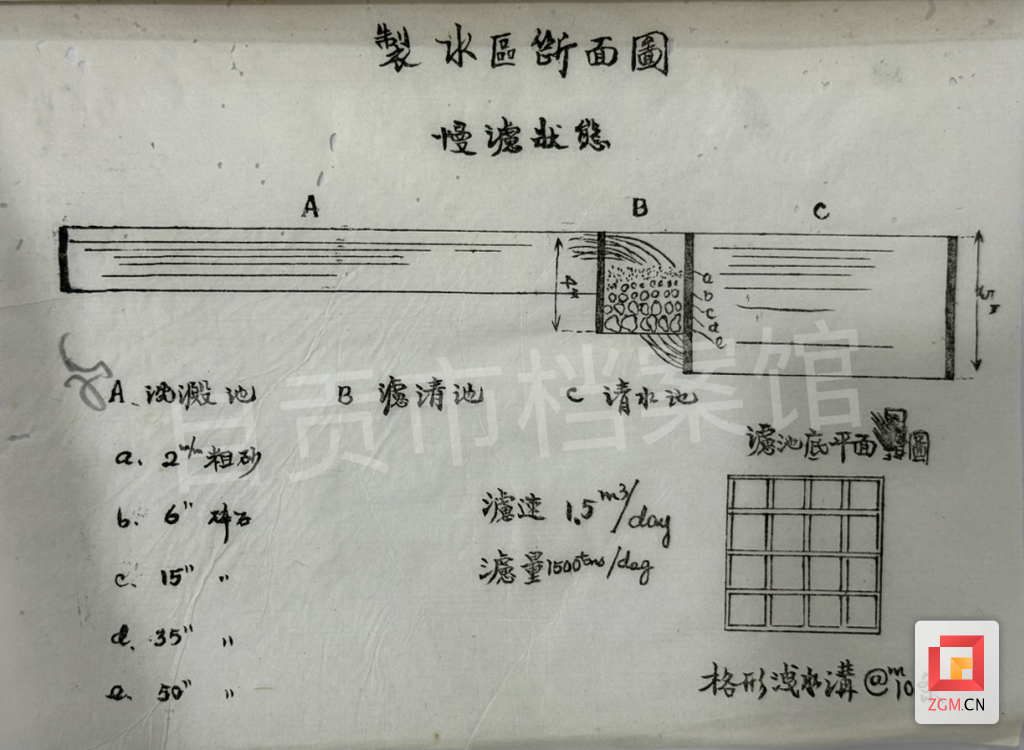 製水區斷面圖
慢濾狀態
A B C
4m
a
b
c
d
e
5m
A、沈澱池 B 濾清池 C 清水池
a. 2m/m 粗砂
b. 6" 碎石
c. 15" "
d. 35" "
e. 50" "
濾速 1.5m³/day
濾量1500tons/day
濾池底平面圖
格形浅水溝@m10
自贡市档案馆
ZGM.CN